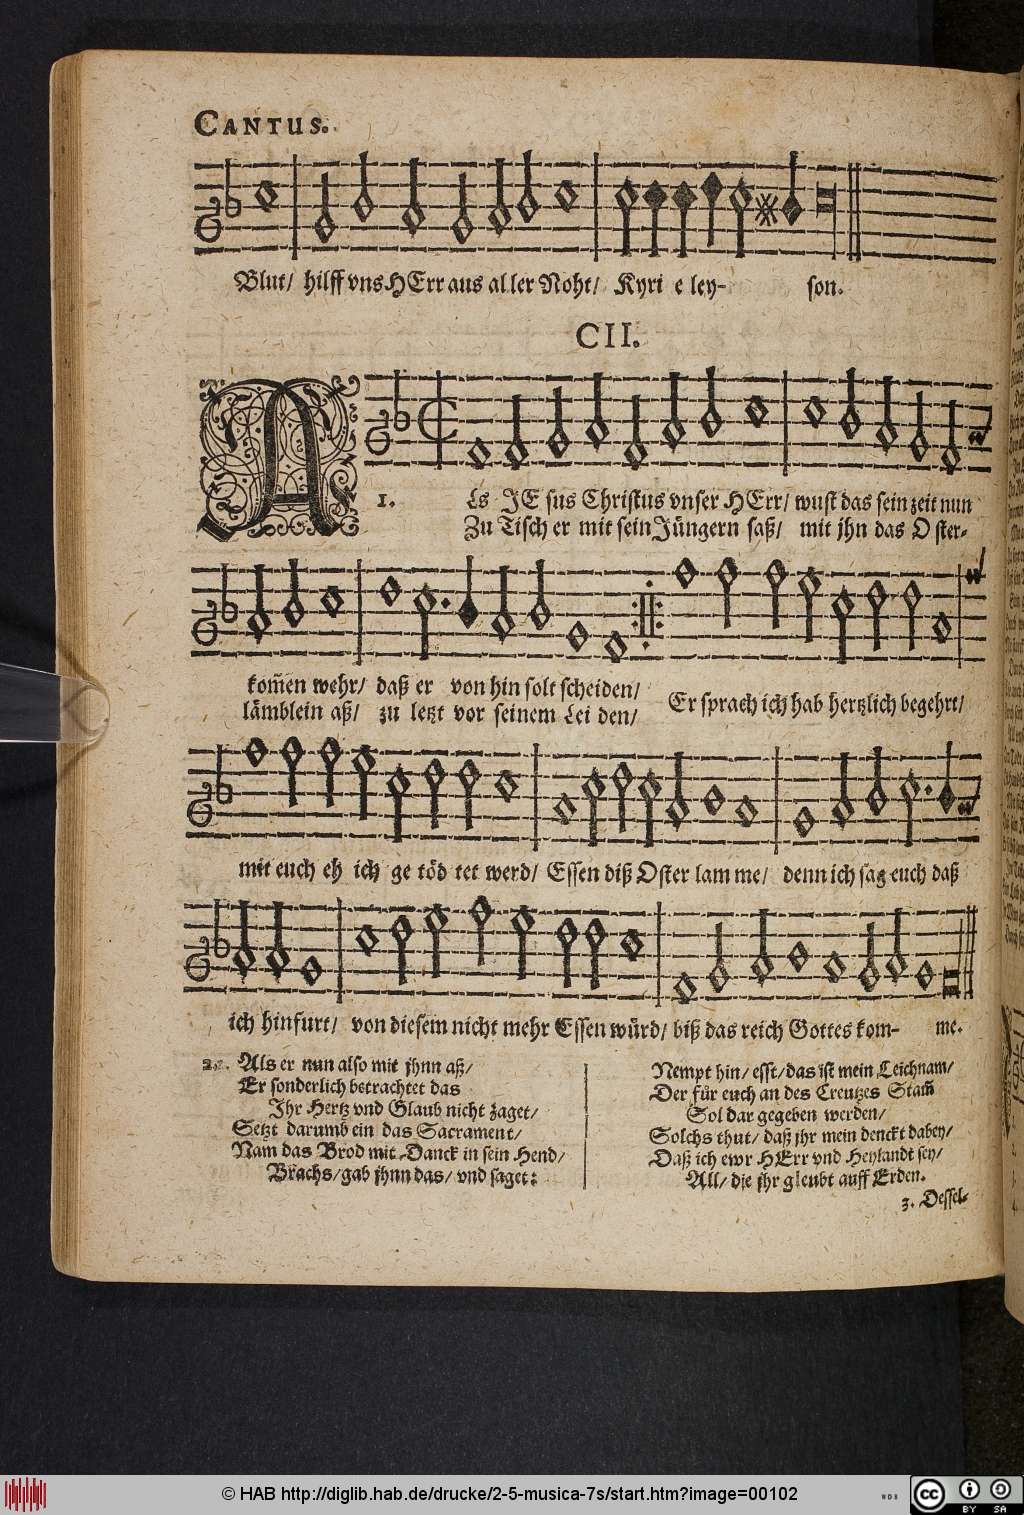 CANTUS.
Blut/ hilff vns HErr aus aller Noht/ Kyri e ley- son.
CII.
1. Als JEsus Christus vnser HErr/ wust das sein zeit nun
Zu Tisch er mit sein Jüngern saß/ mit jhn das Oster-
kom̃en wehr/ daß er von hin solt scheiden/
lämblein aß/ zu letzt vor seinem Lei den/
Er sprach ich hab hertzlich begehrt/
mit euch eh ich ge töd tet werd/ Essen diß Oster lam me/ denn ich sag euch daß
ich hinfurt/ von diesem nicht mehr Essen würd/ biß das reich Gottes kom- me.
2. Als er nun also mit jhnn aß/
Er sonderlich betrachtet das
Ihr Hertz vnd Glaub nicht zaget/
Setzt darumb ein das Sacrament/
Nam das Brod mit Danck in sein Hend/
Brachs/ gab jhnn das/ vnd saget:
Nempt hin/ esst/ das ist mein Leichnam/
Der für euch an des Creutzes Stam̃
Sol dar gegeben werden/
Solchs thut/ daß jhr mein denckt dabey/
Daß ich ewr HErr vnd Heylandt sey/
All/ die jhr gleubt auff Erden.
3. Dessel-
© HAB http://diglib.hab.de/drucke/2-5-musica-7s/start.htm?image=00102
WDB
cc
BY SA